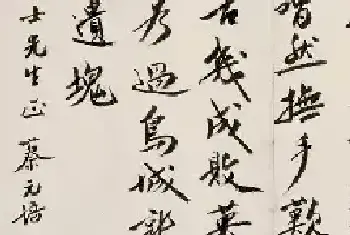 然撫手歎
古幾成敗英
過烏城
遺塊
士先生正 蔡元培